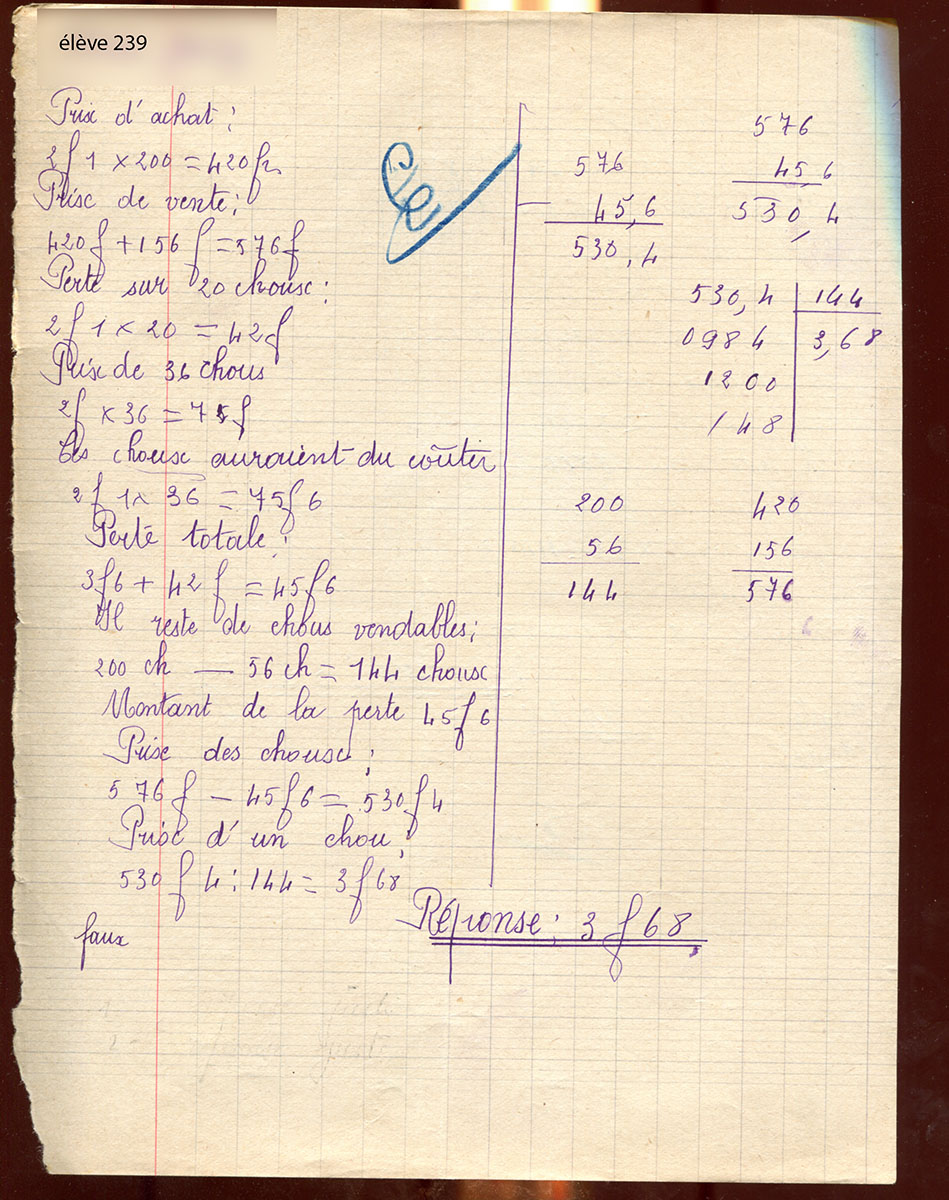 élève 239
Prix d'achat :
2f 1 × 200 = 420 fr.
Prix de vente :
420f + 156 f = 576f
Perte sur 20 choux :
2f 1 × 20 = 42f
Prix de 36 chous
2f × 36 = 75f
choux auraient du coûter
2f 1 × 36 = 75f 6
Perte totale :
3f6 + 42 f = 45f6
Il reste de chous vendables ;
200 ch — 56 ch = 144 choux
Montant de la perte 45f6
Prix des choux ;
576f — 45f6 = 530f4
Prix d'un chou ;
530 f 4 : 144 = 3f68
faux
576
45,6
530,4
576
45,6
530,4
530,4 144
0984 3,68
1200
148
200
56
144
420
156
576
Réponse : 3 f 68